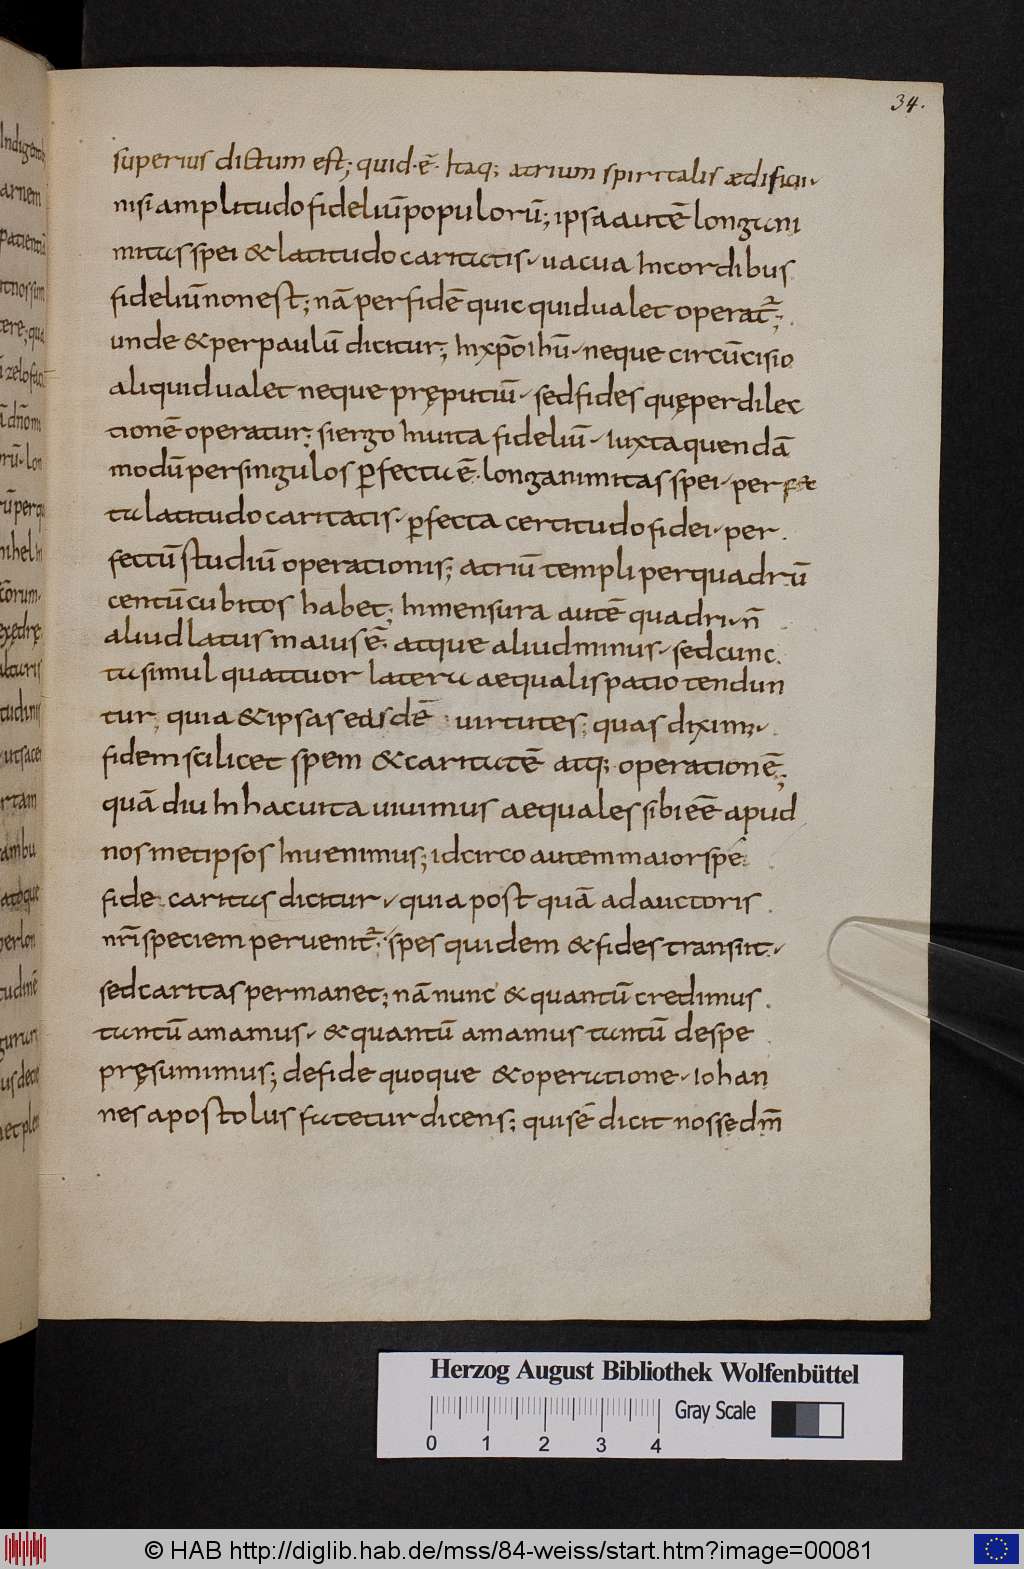 34.
superius dictum est; quid·ē· Itaq; atrium spiritalis ædificii·
nisi amplitudo fideliū populorū; ipsa autē longani
mitas spei & latitudo caritatis· uacua In cordibus
fideliū non est; nā per fidē quic quid ualet operat̃;
unde & per paulū dicitur; In xp̄o ihū· neque circūcisio
aliquid ualet neque pręputiū· sed fides quę per dilec
tionē operatur; si ergo In uita fideliū· iuxta quendā
modū per singulos ꝑfecta ē· longanimitas spei· perfec
ta latitudo caritatis· ꝑfecta certitudo fidei· per
fectū studiū operationis; atriū templi per quadrū
centū cubitos habet; In mensura autē quadri· n̄
aliud latus maius ē· atque aliud minus· sed cunc
ta simul quattuor latera aequali spatio tendun
tur; quia & ipsas easdē uirtutes; quas diximꝰ·
fidem scilicet spem & caritatē atq; operationē;
quā diu In hac uita uiuimus aequales sibi eē apud
nosmet ipsos Inuenimus; idcirco autem maior spe
fide caritas dicitur· quia post quā ad auctoris
nr̄i speciem peruenit̃· spes quidem & fides transiit·
sed caritas permanet; nā nunc & quantū credimus
tantū amamus· & quantū amamus tantū de spe
pręsumimus; de fide quoque & operatione· iohan
nes apostolus fatetur dicens; qui sē dicit nosse dm̄
Herzog August Bibliothek Wolfenbüttel
Gray Scale
0 1 2 3 4
© HAB http://diglib.hab.de/mss/84-weiss/start.htm?image=00081